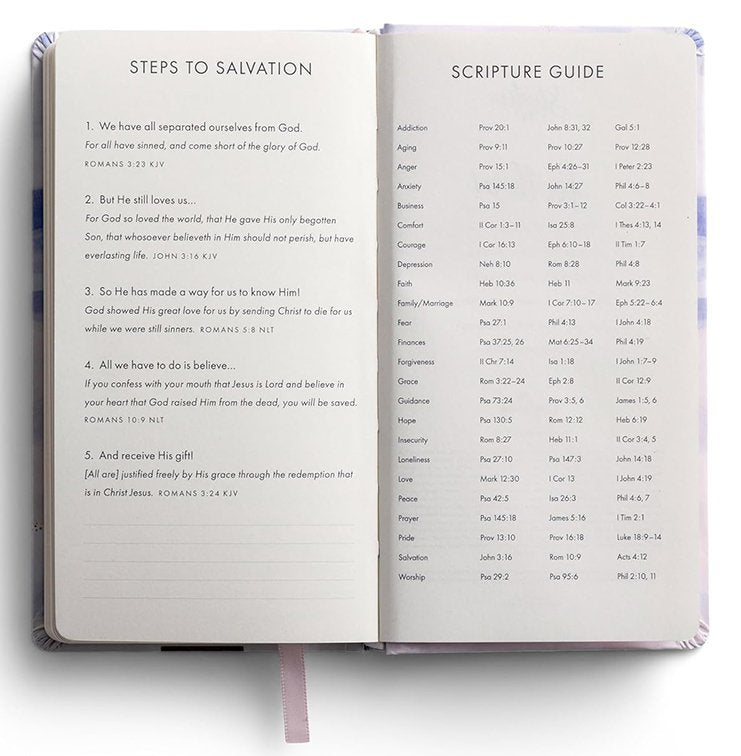 STEPS TO SALVATION
1. We have all separated ourselves from God.
For all have sinned, and come short of the glory of God.
ROMANS 3:23 KJV
2. But He still loves us...
For God so loved the world, that He gave His only begotten
Son, that whosoever believeth in Him should not perish, but have
everlasting life. JOHN 3:16 KJV
3. So He has made a way for us to know Him!
God showed His great love for us by sending Christ to die for us
while we were still sinners. ROMANS 5:8 NLT
4. All we have to do is believe...
If you confess with your mouth that Jesus is Lord and believe in
your heart that God raised Him from the dead, you will be saved.
ROMANS 10:9 NLT
5. And receive His gift!
[All are] justified freely by His grace through the redemption that
is in Christ Jesus. ROMANS 3:24 KJV
SCRIPTURE GUIDE
Addiction Prov 20:1 John 8:31, 32 Gal 5:1
Aging Prov 9:11 Prov 10:27 Prov 12:28
Anger Prov 15:1 Eph 4:26–31 I Peter 2:23
Anxiety Psa 145:18 John 14:27 Phil 4:6–8
Business Psa 15 Prov 3:1–12 Col 3:22–4:1
Comfort II Cor 1:3–11 Isa 25:8 I Thes 4:13, 14
Courage I Cor 16:13 Eph 6:10–18 II Tim 1:7
Depression Neh 8:10 Rom 8:28 Phil 4:8
Faith Heb 10:36 Heb 11 Mark 9:23
Family/Marriage Mark 10:9 I Cor 7:10–17 Eph 5:22–6:4
Fear Psa 27:1 Phil 4:13 I John 4:18
Finances Psa 37:25, 26 Mat 6:25–34 Phil 4:19
Forgiveness II Chr 7:14 Isa 1:18 I John 1:7–9
Grace Rom 3:22–24 Eph 2:8 II Cor 12:9
Guidance Psa 73:24 Prov 3:5, 6 James 1:5, 6
Hope Psa 130:5 Rom 12:12 Heb 6:19
Insecurity Rom 8:27 Heb 11:1 II Cor 3:4, 5
Loneliness Psa 27:10 Psa 147:3 John 14:18
Love Mark 12:30 I Cor 13 I John 4:19
Peace Psa 42:5 Isa 26:3 Phil 4:6, 7
Prayer Psa 145:18 James 5:16 I Tim 2:1
Pride Prov 13:10 Prov 16:18 Luke 18:9–14
Salvation John 3:16 Rom 10:9 Acts 4:12
Worship Psa 29:2 Psa 95:6 Phil 2:10, 11